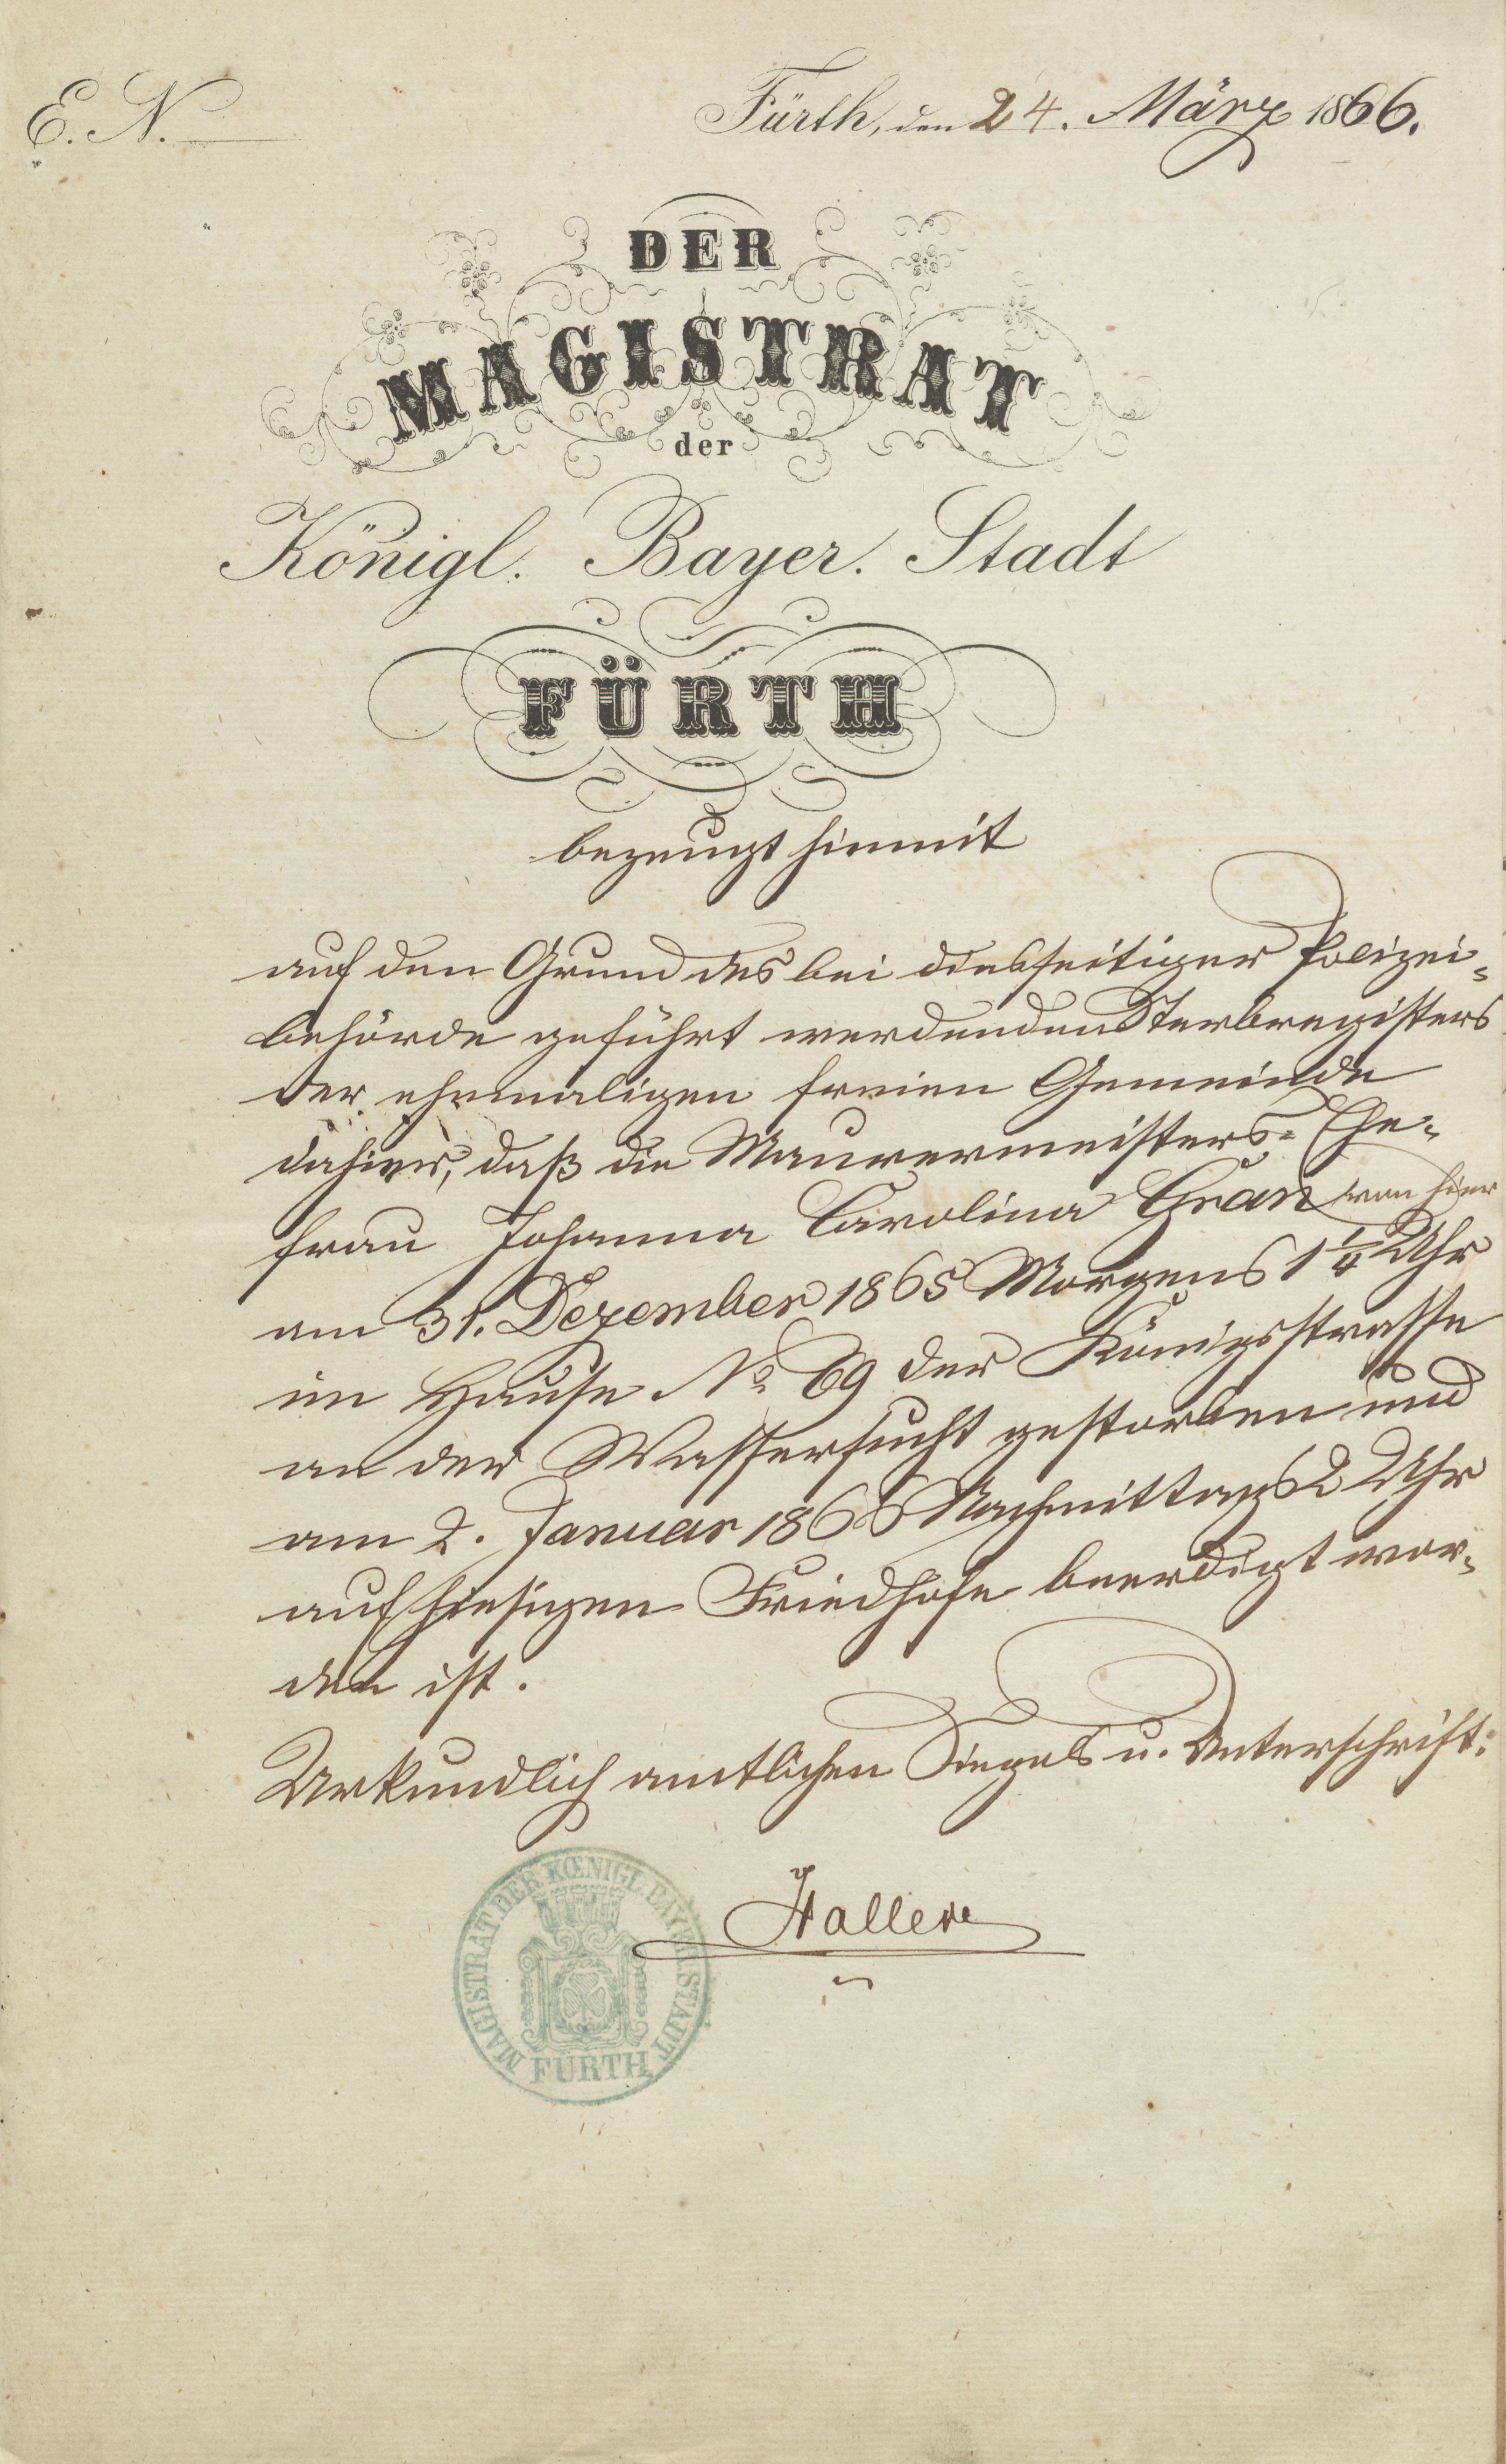 E. N.
Fürth, den 24. März 1866.
DER
MAGISTRAT
der
Königl. Bayer. Stadt
FÜRTH
bezeugt hiemit
auf den Grund des bei diesseitiger Polizei-
behörde geführt werdenden Sterberegisters
der ehemaligen freien Gemeinde
dahier, daß die Maurermeisters-Ehe-
frau Johanna Carolina Gran von hier
am 31. Dezember 1865 Morgens 1 1/4 Uhr
im Hause No. 69 der Königsstrasse
an der Wassersucht gestorben und
am 2. Januar 1866 Nachmittags 2 Uhr
auf hiesigen Friedhofe beerdigt wor-
den ist.
Urkundlich amtlichen Siegels u. Unterschrift.
MAGISTRAT DER KŒNIGL. BAYER. STADT
FÜRTH
Haller